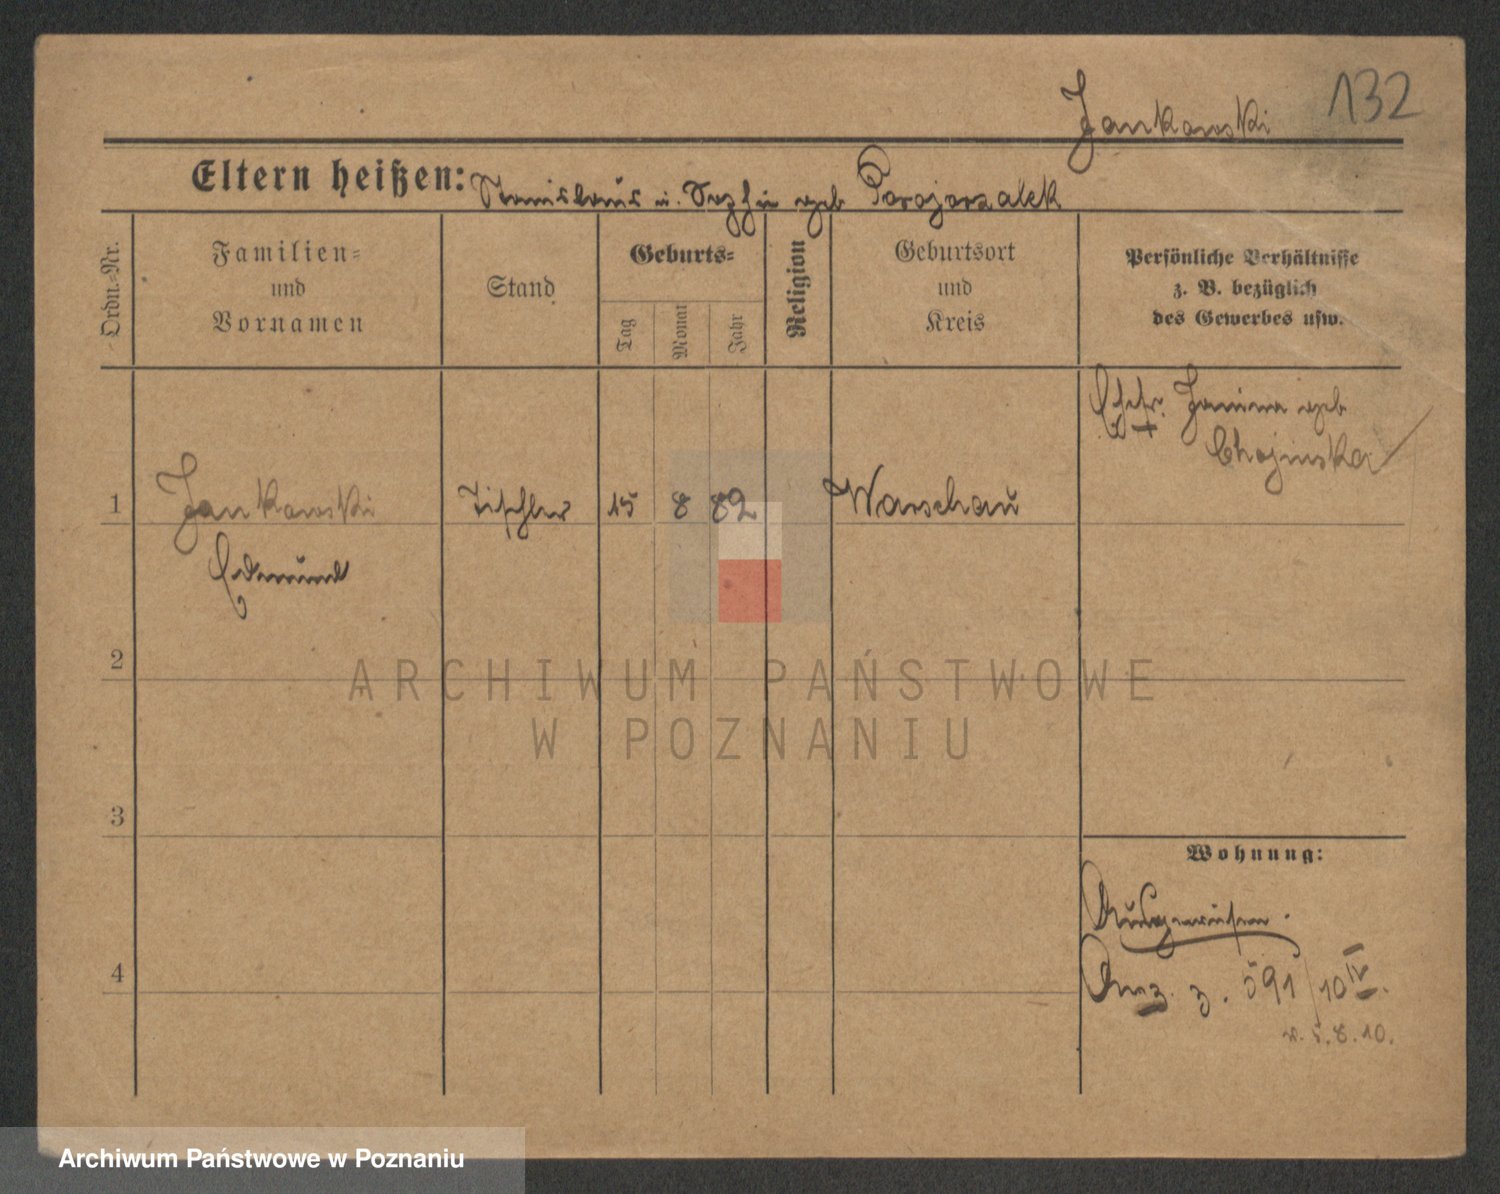 132
Jankowski
Eltern heißen: Stanislaus u. Sophie geb
Ordn.-Nr.
Familien-
und
Vornamen
Stand
Geburts-
Tag
Monat
Jahr
Religion
Geburtsort
und
Kreis
Persönliche Verhältnisse
z. B. bezüglich
des Gewerbes usw.
Ehefr. Janina geb
Chojinska
1 Jankowski Tischler 15 8 82 Warschau
Edmund
2
3
4
Wohnung:
Ausgewiesen.
z. 591/10 IV.
5.8.10.
ARCHIWUM PAŃSTWOWE
W POZNANIU
Archiwum Państwowe w Poznaniu